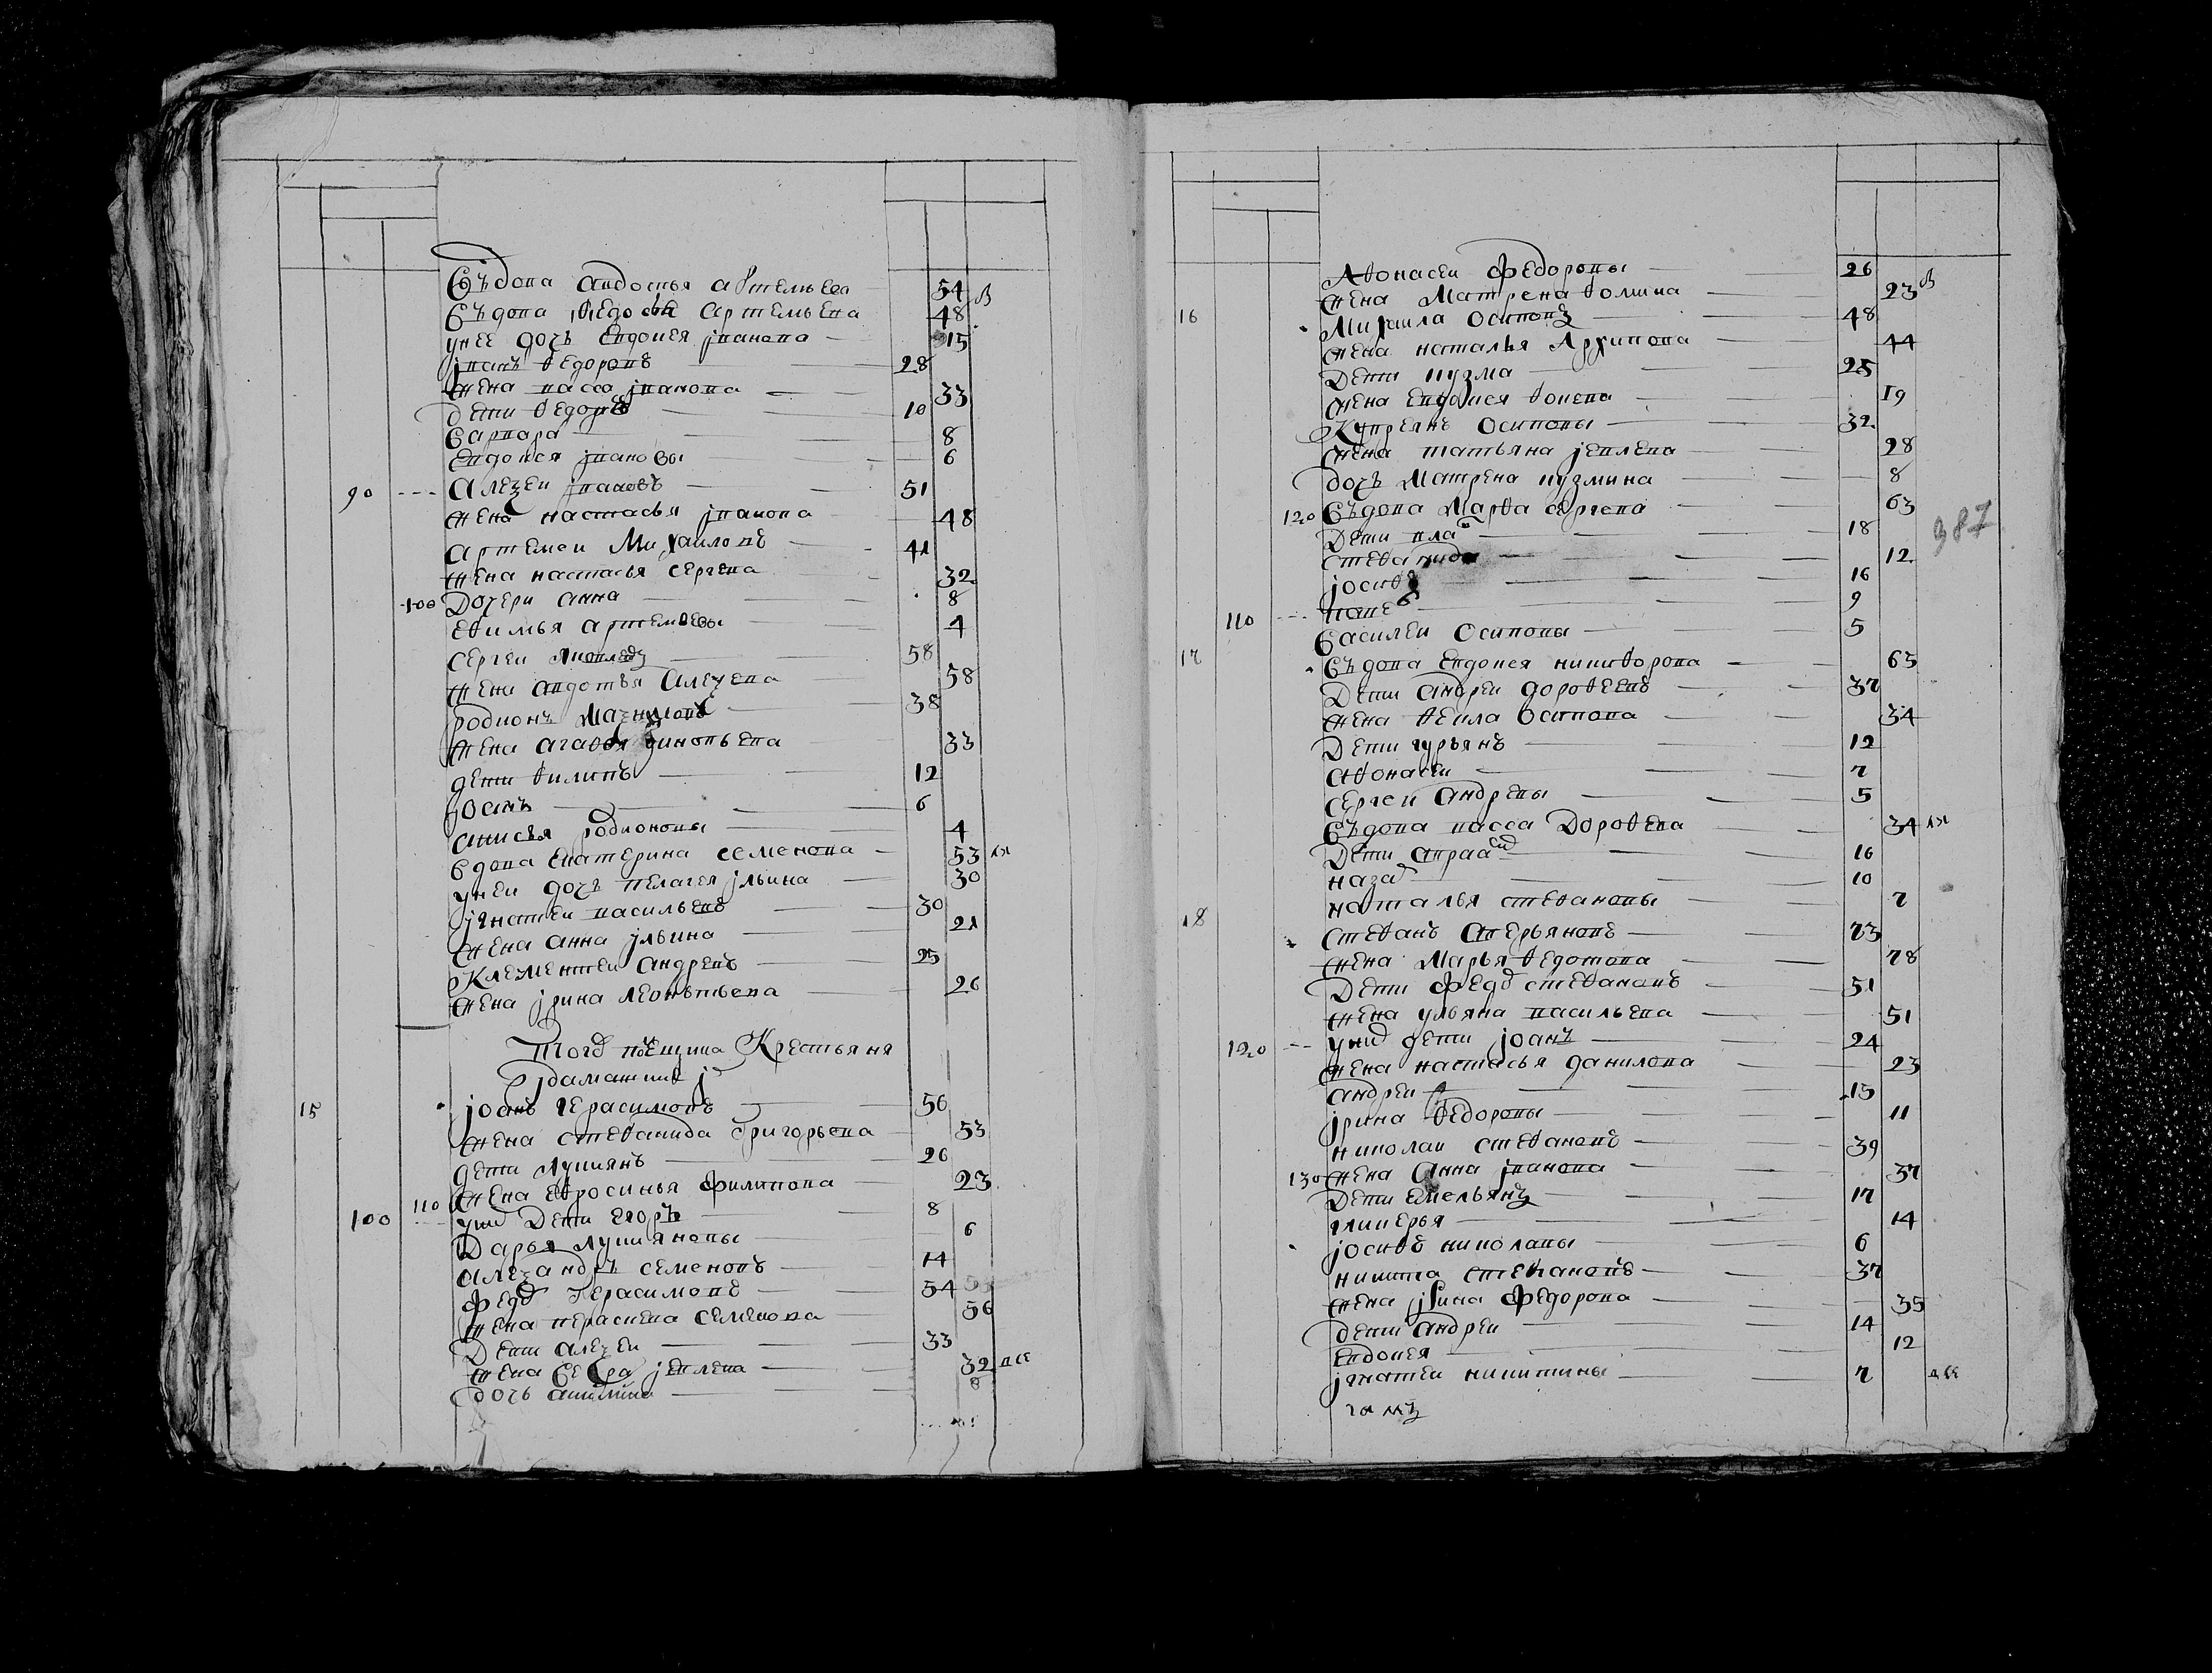 вдова авдотья артемьева 54 в
вдова федосья артемьева 48
у нее дочь евдокея иванова 15
иванъ федоровъ 28
жена васса иванова 33
дети федоръ 10
варвара 8
евдокея ивановы 6
90 алексеи ивановъ 51
жена настасья иванова 48
артемеи михаиловъ 41
жена настасья сергеева 32
100 дочери анна 8
ефимья артемьевы 4
сергеи 58
жена авдотья алексеева 58
родионъ 38
жена агафья зиновьева 33
дети филипъ 12
иоанъ 6
анисья родионовы 4
вдова екатерина семенова 53
у неи дочь пелагея ильина 30
игнатеи васильевъ 30
жена анна ильина 21
клементеи андреевъ 25
жена ирина леонтьева 26
того помещика крестьяня
15 иоанъ герасимовъ 56
жена стефанида григорьева 53
дети лукиянъ 26
жена ефросинья филипова 23
100 110 у них дети егоръ 8
дарья лукияновы 6
александръ семеновъ 14
федоръ герасимовъ 54
жена парасковья семенова 56
дети алексеи 33
жена иевлева 32 все
дочь акилина 8
афонасеи федоровы 26
жена матрена фомина 23 в
16 михаила осиповъ 48
жена наталья архипова 44
дети кузма 25
жена евдокея фокеева 19
куприянъ осиповы 32
жена татьяна иевлева 28
дочь матрена кузмина 8
120 вдова марфа сергеева 63
дети 18
стефанида 12
387
иосифъ 16
110 9
василеи осиповы 5
17 вдова евдокея никифорова 63
дети андреи дорофеевъ 37
жена фекла осипова 34
дети гурьянъ 12
афонасеи 7
сергеи андреевы 5
вдова васса дорофеева 34
дети 16
назаръ 10
наталья стефановы 7
18 стефанъ аверьяновъ 73
жена марья федотова 78
дети федоръ стефановъ 51
жена ульяна васильева 51
120 у них дети иоанъ 24
жена настасья данилова 23
андреи 15
ирина федоровы 11
николаи стефановъ 39
130 жена анна иванова 37
дети емельянъ 17
гликерья 14
иосифъ николаевы 6
никита стефановъ 37
жена ирина федорова 35
дети андреи 14
евдокея 12
игнатеи никитины 7 все